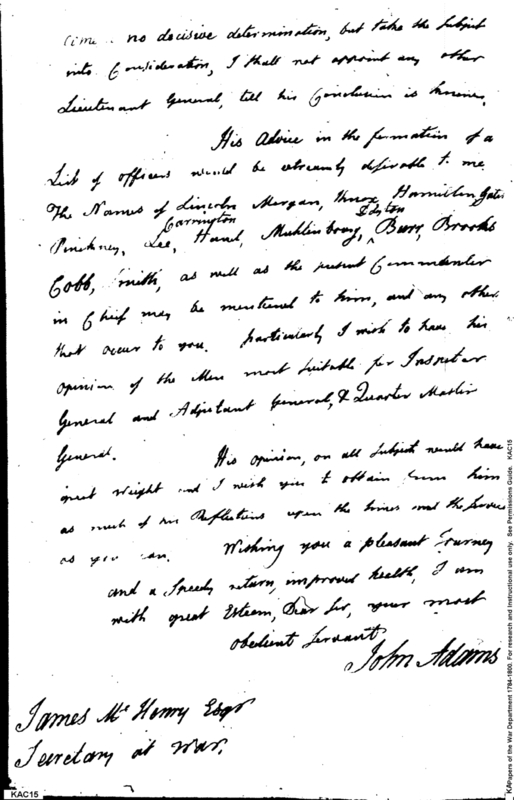 time no decisive determination, but take the Subject
into Consideration, I shall not appoint any other
Lieutenant General, till his Conclusion is known.
His Advice in the formation of a
List of officers would be extreamly desirable to me.
The Names of Lincoln Morgan, Knox, Hamilton Gates
Pinckney, Lee, Carrington Hand, Muhlenbourg, Burr, Brooks
Cobb, Smith, as well as the present Commander
in Chief may be mentioned to him, and any other
that occur to you. particularly I wish to have his
opinion of the Men most suitable for Inspector
General and Adjutant General, & Quarter Master
General.
His opinion, on all Subjects would have
great weight and I wish you to obtain from him
as much of his Reflections upon the times and the Service
as you can. Wishing you a pleasant Journey
and a Speedy return, improved health, I am
with great Esteem, Dear Sir, your most
obedient Servant
John Adams
James Mc Henry Esqr
Secretary at War.
KAC15
KAPapers of the War Department 1784-1800. For research and Instructional use only. See Permissions Guide. KAC15